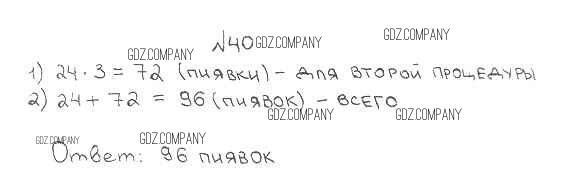 №40 GDZ.COMPANY GDZ.COMPANY
GDZ.COMPANY
1) 24 · 3 = 72 (пиявки) – для второй процедуры
2) 24 + 72 = 96 (пиявок) – всего
GDZ.COMPANY GDZ.COMPANY
GDZ.COMPANY GDZ.COMPANY
Ответ: 96 пиявок